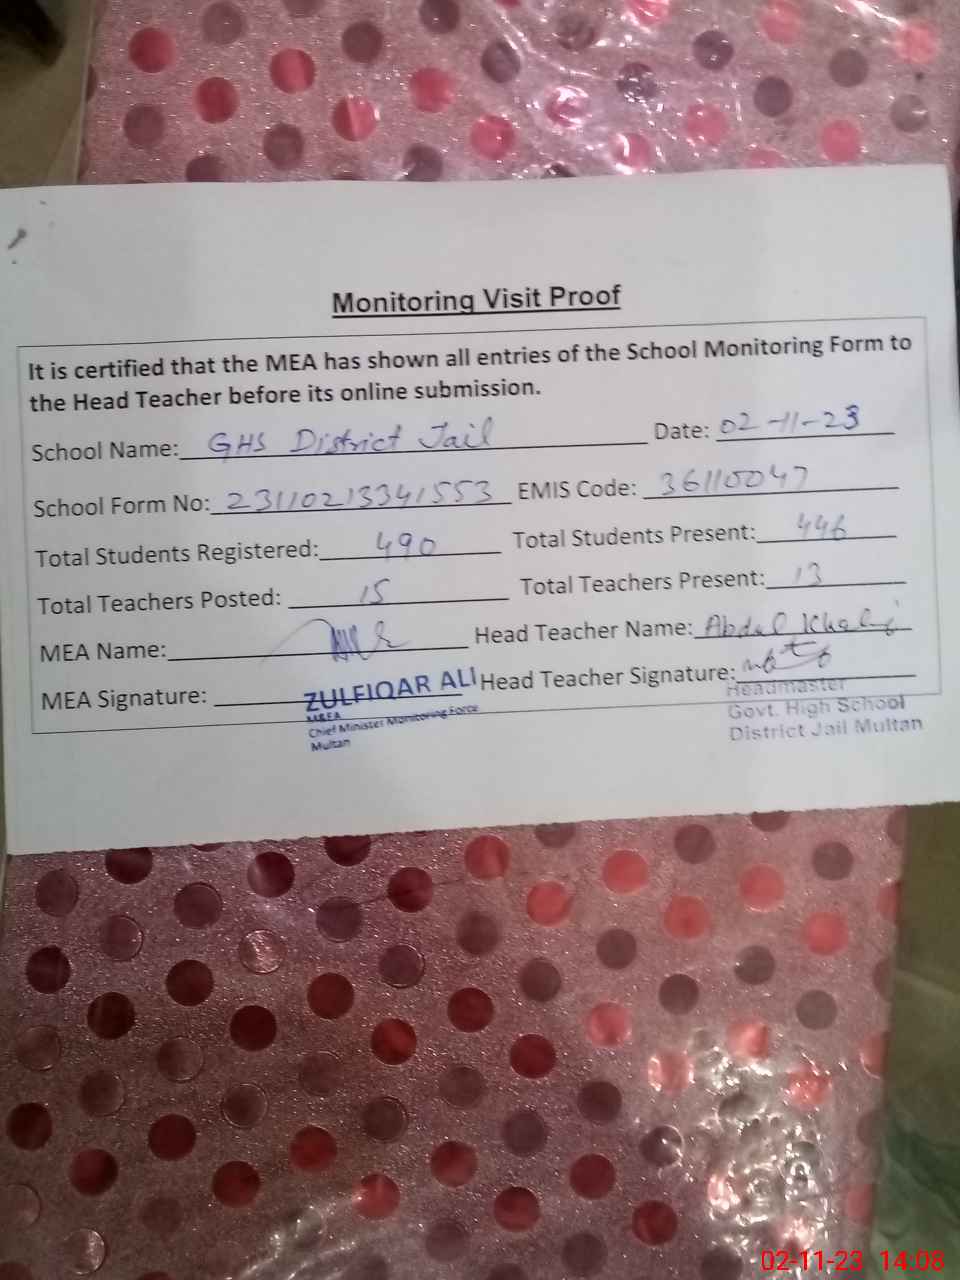 Monitoring Visit Proof
It is certified that the MEA has shown all entries of the School Monitoring Form to
the Head Teacher before its online submission.
School Name: GHS District Jail Date: 02-11-23
School Form No: 23110213341553 EMIS Code: 36110047
Total Students Registered: 490 Total Students Present: 446
Total Teachers Posted: 15 Total Teachers Present: 13
MEA Name: Head Teacher Name: Abdul
MEA Signature: Head Teacher Signature:
ZULFIQAR ALI
M&EA
Chief Minister Monitoring Force
Multan
Headmaster
Govt. High School
District Jail Multan
02-11-23 14:08